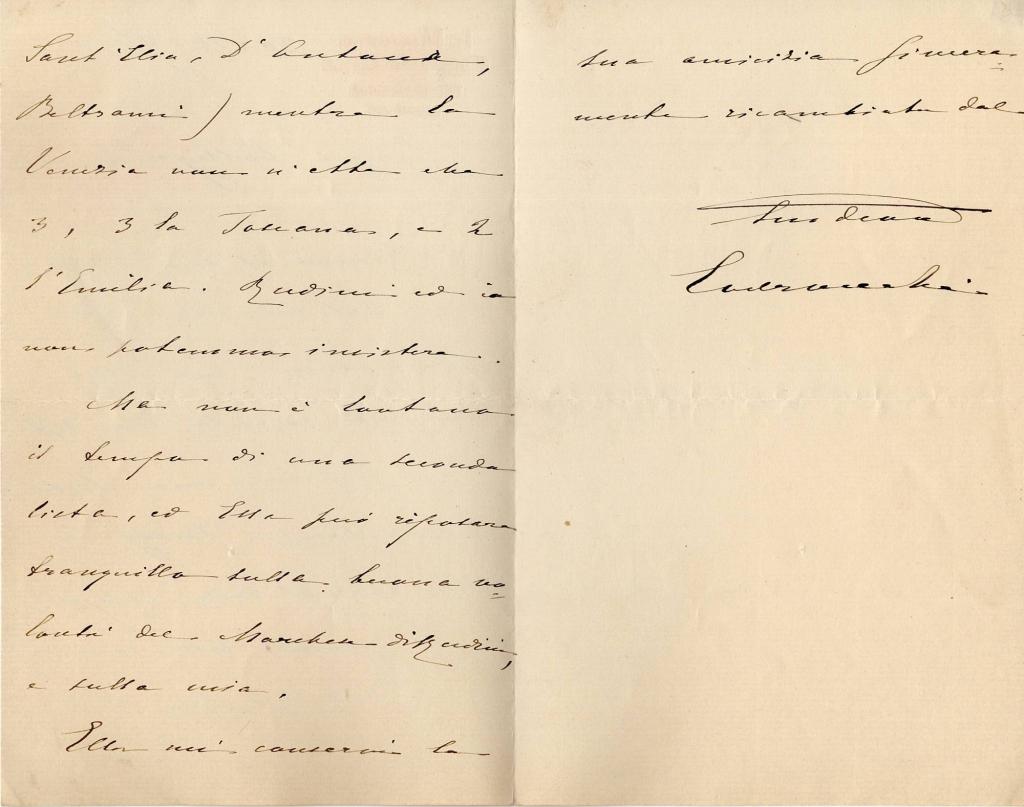 Sant'Elia, D'Antona,
Beltrami) mentre la
Venezia non n'ebbe che
3, 3 la Toscana, e 2
l'Emilia. Rudinì ed io
non potemmo insistere.
Ma non è lontano
il tempo di una seconda
lista, ed Ella può riposare
tranquillo sulla buona vo=
lontà del Marchese di Rudinì,
e sulla mia.
Ella mi conservi la
sua amicizia sincera=
mente ricambiata dal
Suo